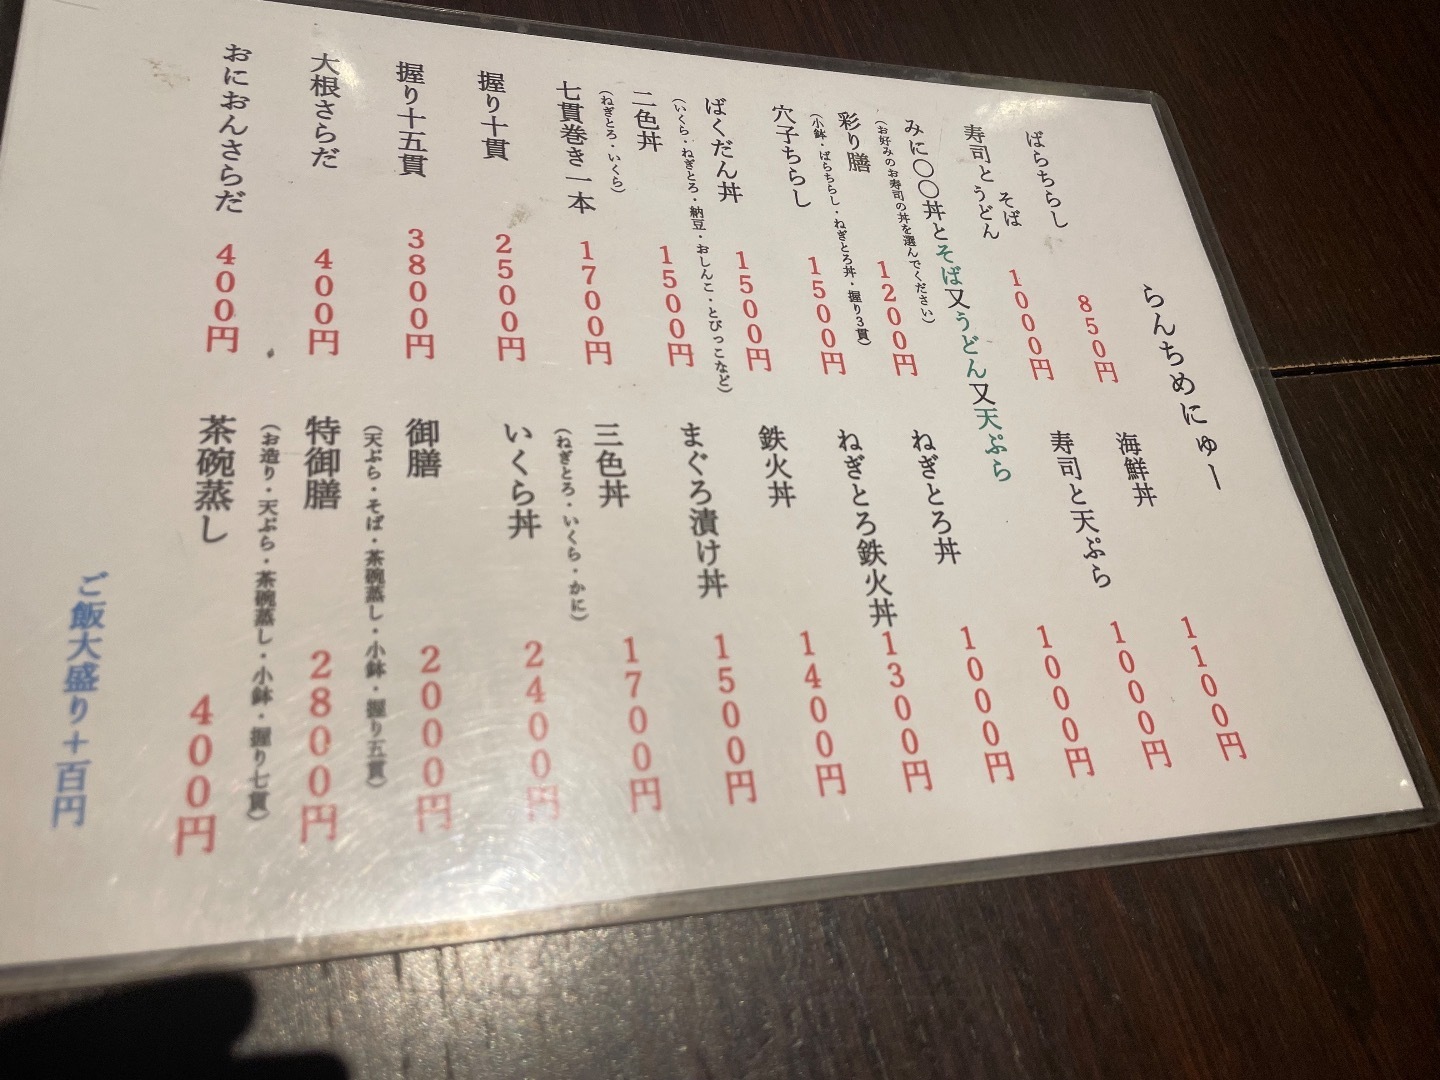 らんちめにゅー
ばらちらし　850円
海鮮丼　1100円
寿司とうどん　1000円
そば
寿司と天ぷら　1000円
みに〇〇丼とそば又うどん又天ぷら　1000円
（お好みのお寿司の丼を選んでください）
彩り膳　1200円
（小鉢・ばらちらし・ねぎとろ丼・握り３貫）
ねぎとろ丼　1000円
穴子ちらし　1500円
ねぎとろ鉄火丼　1300円
ばくだん丼　1500円
（いくら・ねぎとろ・納豆・おしんこ・とびっこなど）
鉄火丼　1400円
二色丼　1500円
（ねぎとろ・いくら）
まぐろ漬け丼　1500円
七貫巻き一本　1700円
三色丼　1700円
（ねぎとろ・いくら・かに）
握り十貫　2500円
いくら丼　2400円
握り十五貫　3800円
御膳　2000円
（天ぷら・そば・茶碗蒸し・小鉢・握り五貫）
大根さらだ　400円
特御膳　2800円
（お造り・天ぷら・茶碗蒸し・小鉢・握り七貫）
おにおんさらだ　400円
茶碗蒸し　400円
ご飯大盛り＋百円